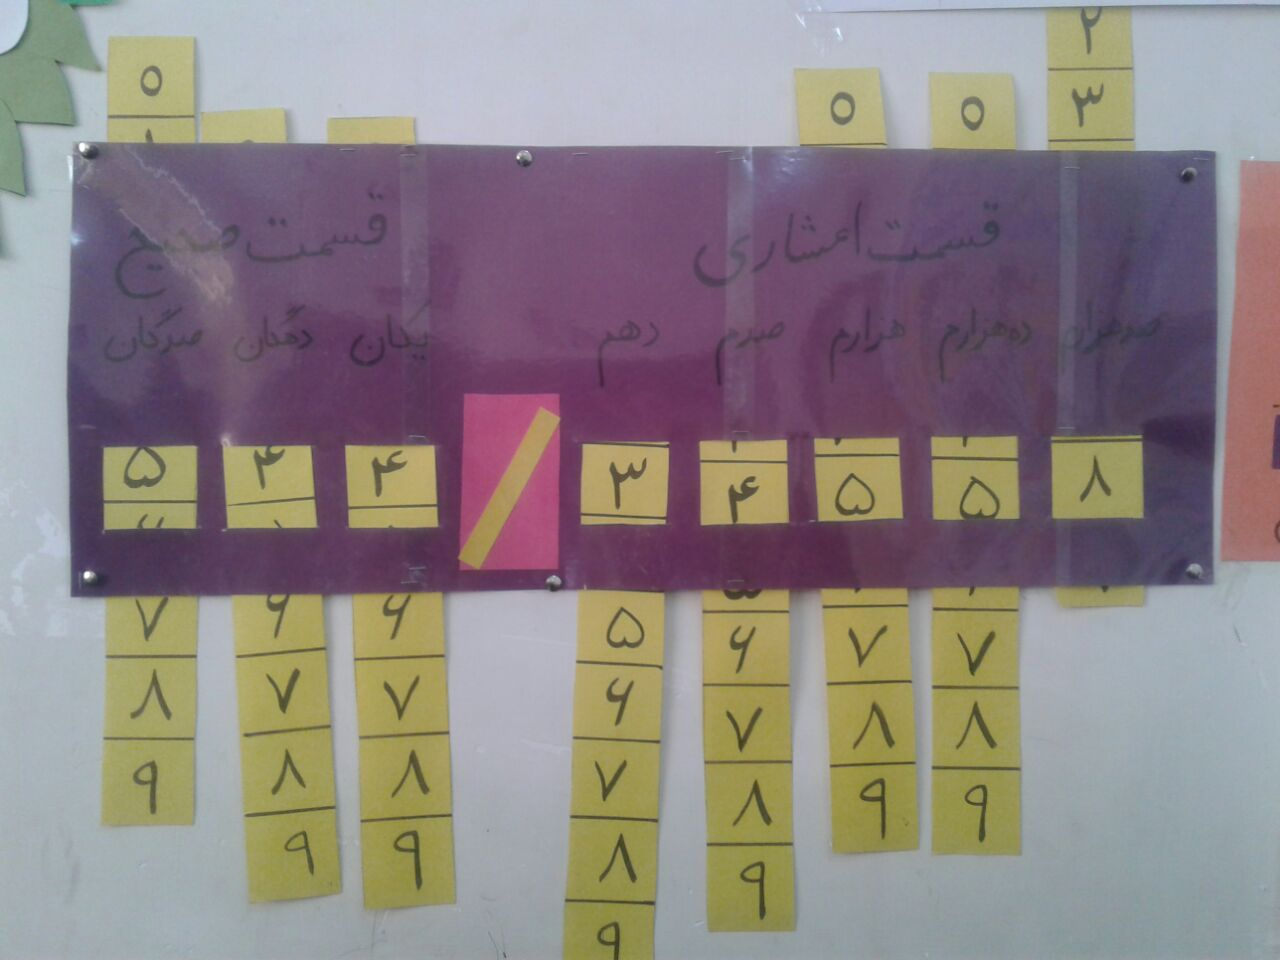 ۲
۰ ۰ ۰ ۳
قسمت صحیح قسمت اعشاری
صدگان دهگان یکان دهم صدم هزارم ده هزارم
۵ ۴ ۴ / ۳ ۴ ۵ ۵ ۸
۷ ۶ ۶ ۵ ۶ ۷ ۷
۸ ۷ ۷ ۶ ۷ ۸ ۸
۹ ۸ ۸ ۷ ۸ ۹ ۹
۹ ۹ ۸ ۹
۹